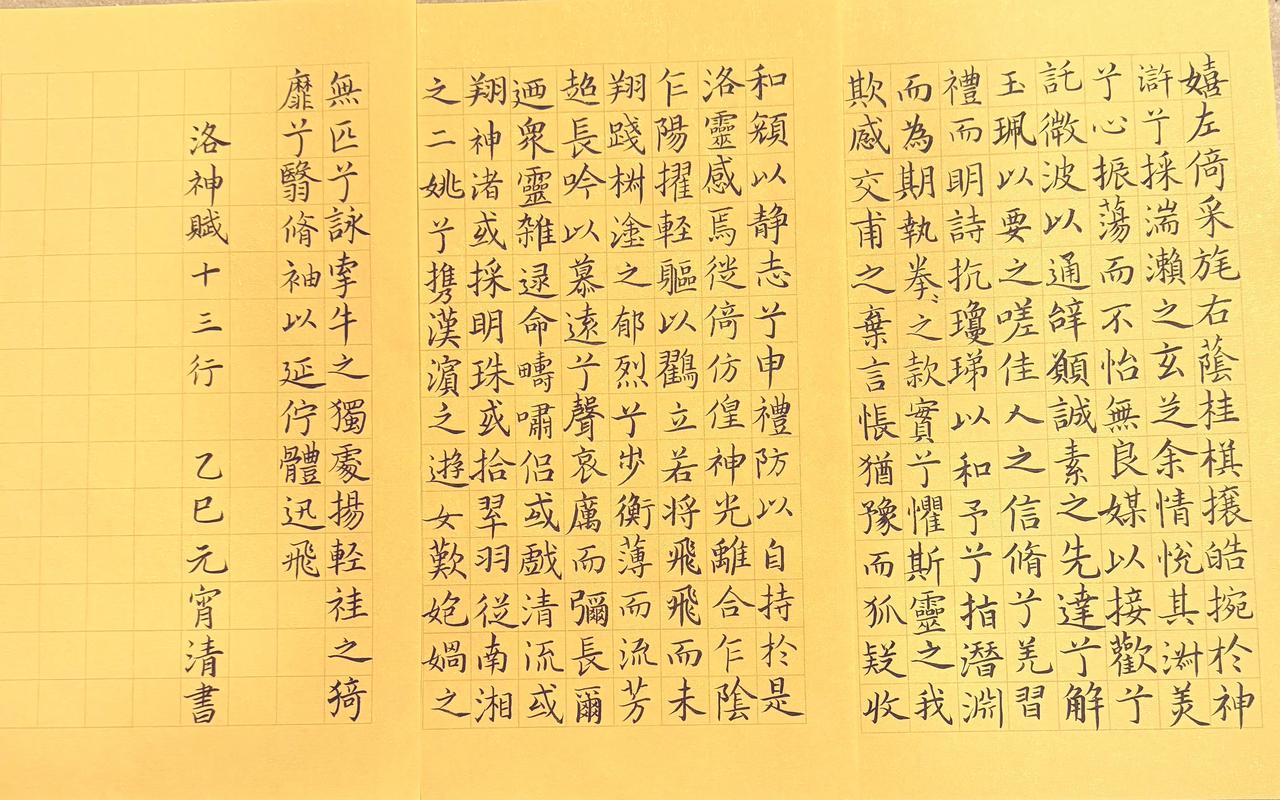 嬉左倚采旄右蔭桂棋攘皓捥於神
滸兮採湍瀨之玄芝余情悅其淑美
兮心振蕩而不怡無良媒以接歡兮
託微波以通辝願誠素之先達兮解
玉珮以要之嗟佳人之信脩兮羌習
禮而明詩抗瓊珶以和予兮指潛淵
而為期執拳〻之款實兮懼斯靈之我
欺感交甫之棄言悵猶豫而狐疑收
和顏以静志兮申禮防以自持於是
洛靈感焉徙倚仿偟神光離合乍陰
乍陽擢輕軀以鶴立若將飛飛而未
翔踐椒塗之郁烈兮步衡薄而流芳
超長吟以慕遠兮聲哀厲而彌長爾
迺衆靈雜遝命疇嘯侶或戲清流或
翔神渚或採明珠或拾翠羽從南湘
之二姚兮攜漢濱之遊女歎匏媧之
無匹兮詠牽牛之獨處揚輕袿之猗
靡兮翳脩袖以延佇體迅飛
洛神賦十三行 乙巳元宵清書